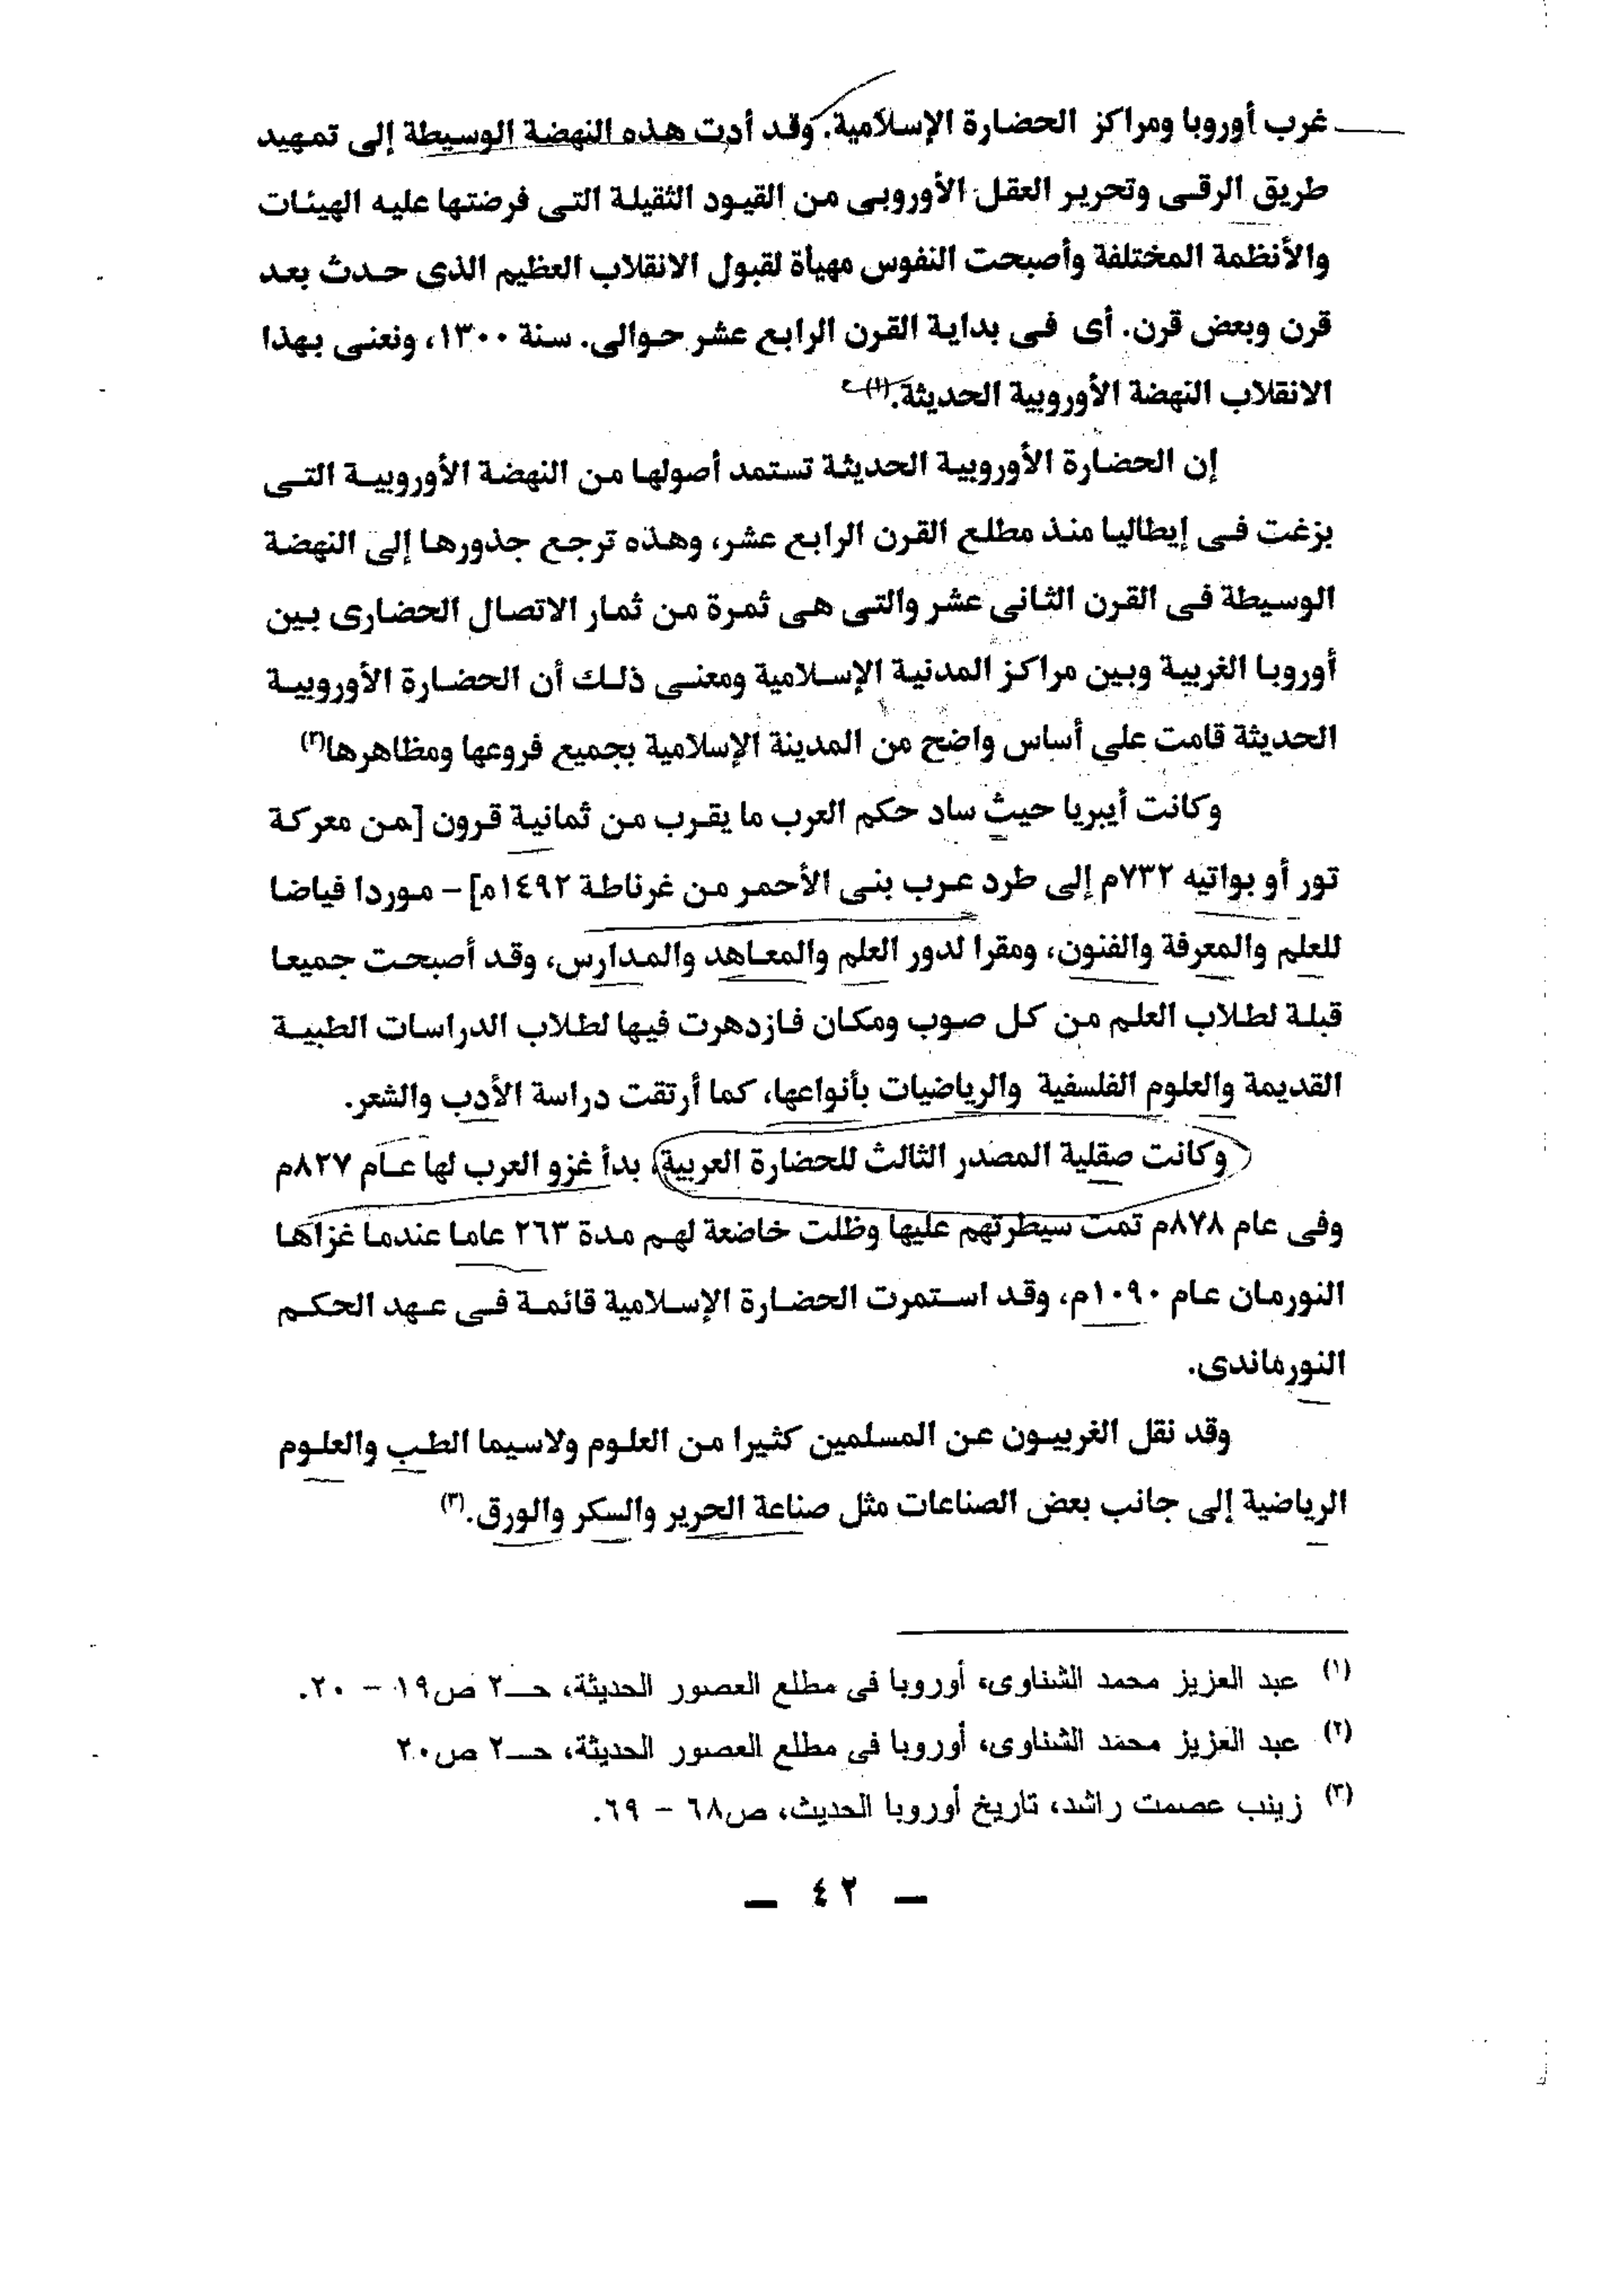 غرب أوروبا ومراكز الحضارة الإسلامية. وقد أدت هذه النهضة الوسيطة إلى تمهيد
طريق الرقى وتحرير العقل الأوروبى من القيود الثقيلة التى فرضتها عليه الهيئات
والأنظمة المختلفة وأصبحت النفوس مهيأة لقبول الانقلاب العظيم الذى حدث بعد
قرن وبعض قرن. أى فى بداية القرن الرابع عشر حوالى. سنة ١٣٠٠، ونعنى بهذا
الانقلاب النهضة الأوروبية الحديثة.(١)
إن الحضارة الأوروبية الحديثة تستمد أصولها من النهضة الأوروبية التى
بزغت فى إيطاليا منذ مطلع القرن الرابع عشر، وهذه ترجع جذورها إلى النهضة
الوسيطة فى القرن الثانى عشر والتى هى ثمرة من ثمار الاتصال الحضارى بين
أوروبا الغربية وبين مراكز المدنية الإسلامية ومعنى ذلك أن الحضارة الأوروبية
الحديثة قامت على أساس واضح من المدينة الإسلامية بجميع فروعها ومظاهرها(٢)
وكانت أيبريا حيث ساد حكم العرب ما يقرب من ثمانية قرون [من معركة
تور أو بواتيه ٧٣٢م إلى طرد عرب بنى الأحمر من غرناطة ١٤٩٢م] – موردا فياضا
للعلم والمعرفة والفنون، ومقرا لدور العلم والمعاهد والمدارس، وقد أصبحت جميعا
قبلة لطلاب العلم من كل صوب ومكان فازدهرت فيها لطلاب الدراسات الطبية
القديمة والعلوم الفلسفية والرياضيات بأنواعها، كما أرتقت دراسة الأدب والشعر.
وكانت صقلية المصدر الثالث للحضارة العربية، بدأ غزو العرب لها عام ٨٢٧م
وفى عام ٨٧٨م تمت سيطرتهم عليها وظلت خاضعة لهم مدة ٢٦٣ عاما عندما غزاها
النورمان عام ١٠٩٠م، وقد استمرت الحضارة الإسلامية قائمة فى عهد الحكم
النورماندى.
وقد نقل الغربيون عن المسلمين كثيرا من العلوم ولاسيما الطب والعلوم
الرياضية إلى جانب بعض الصناعات مثل صناعة الحرير والسكر والورق.(٣)
(١) عبد العزيز محمد الشناوى، أوروبا فى مطلع العصور الحديثة، حــ٢ ص١٩ – ٢٠.
(٢) عبد العزيز محمد الشناوى، أوروبا فى مطلع العصور الحديثة، حــ٢ ص٢٠
(٣) زينب عصمت راشد، تاريخ أوروبا الحديث، ص٦٨ – ٦٩.
— ٤٢ —